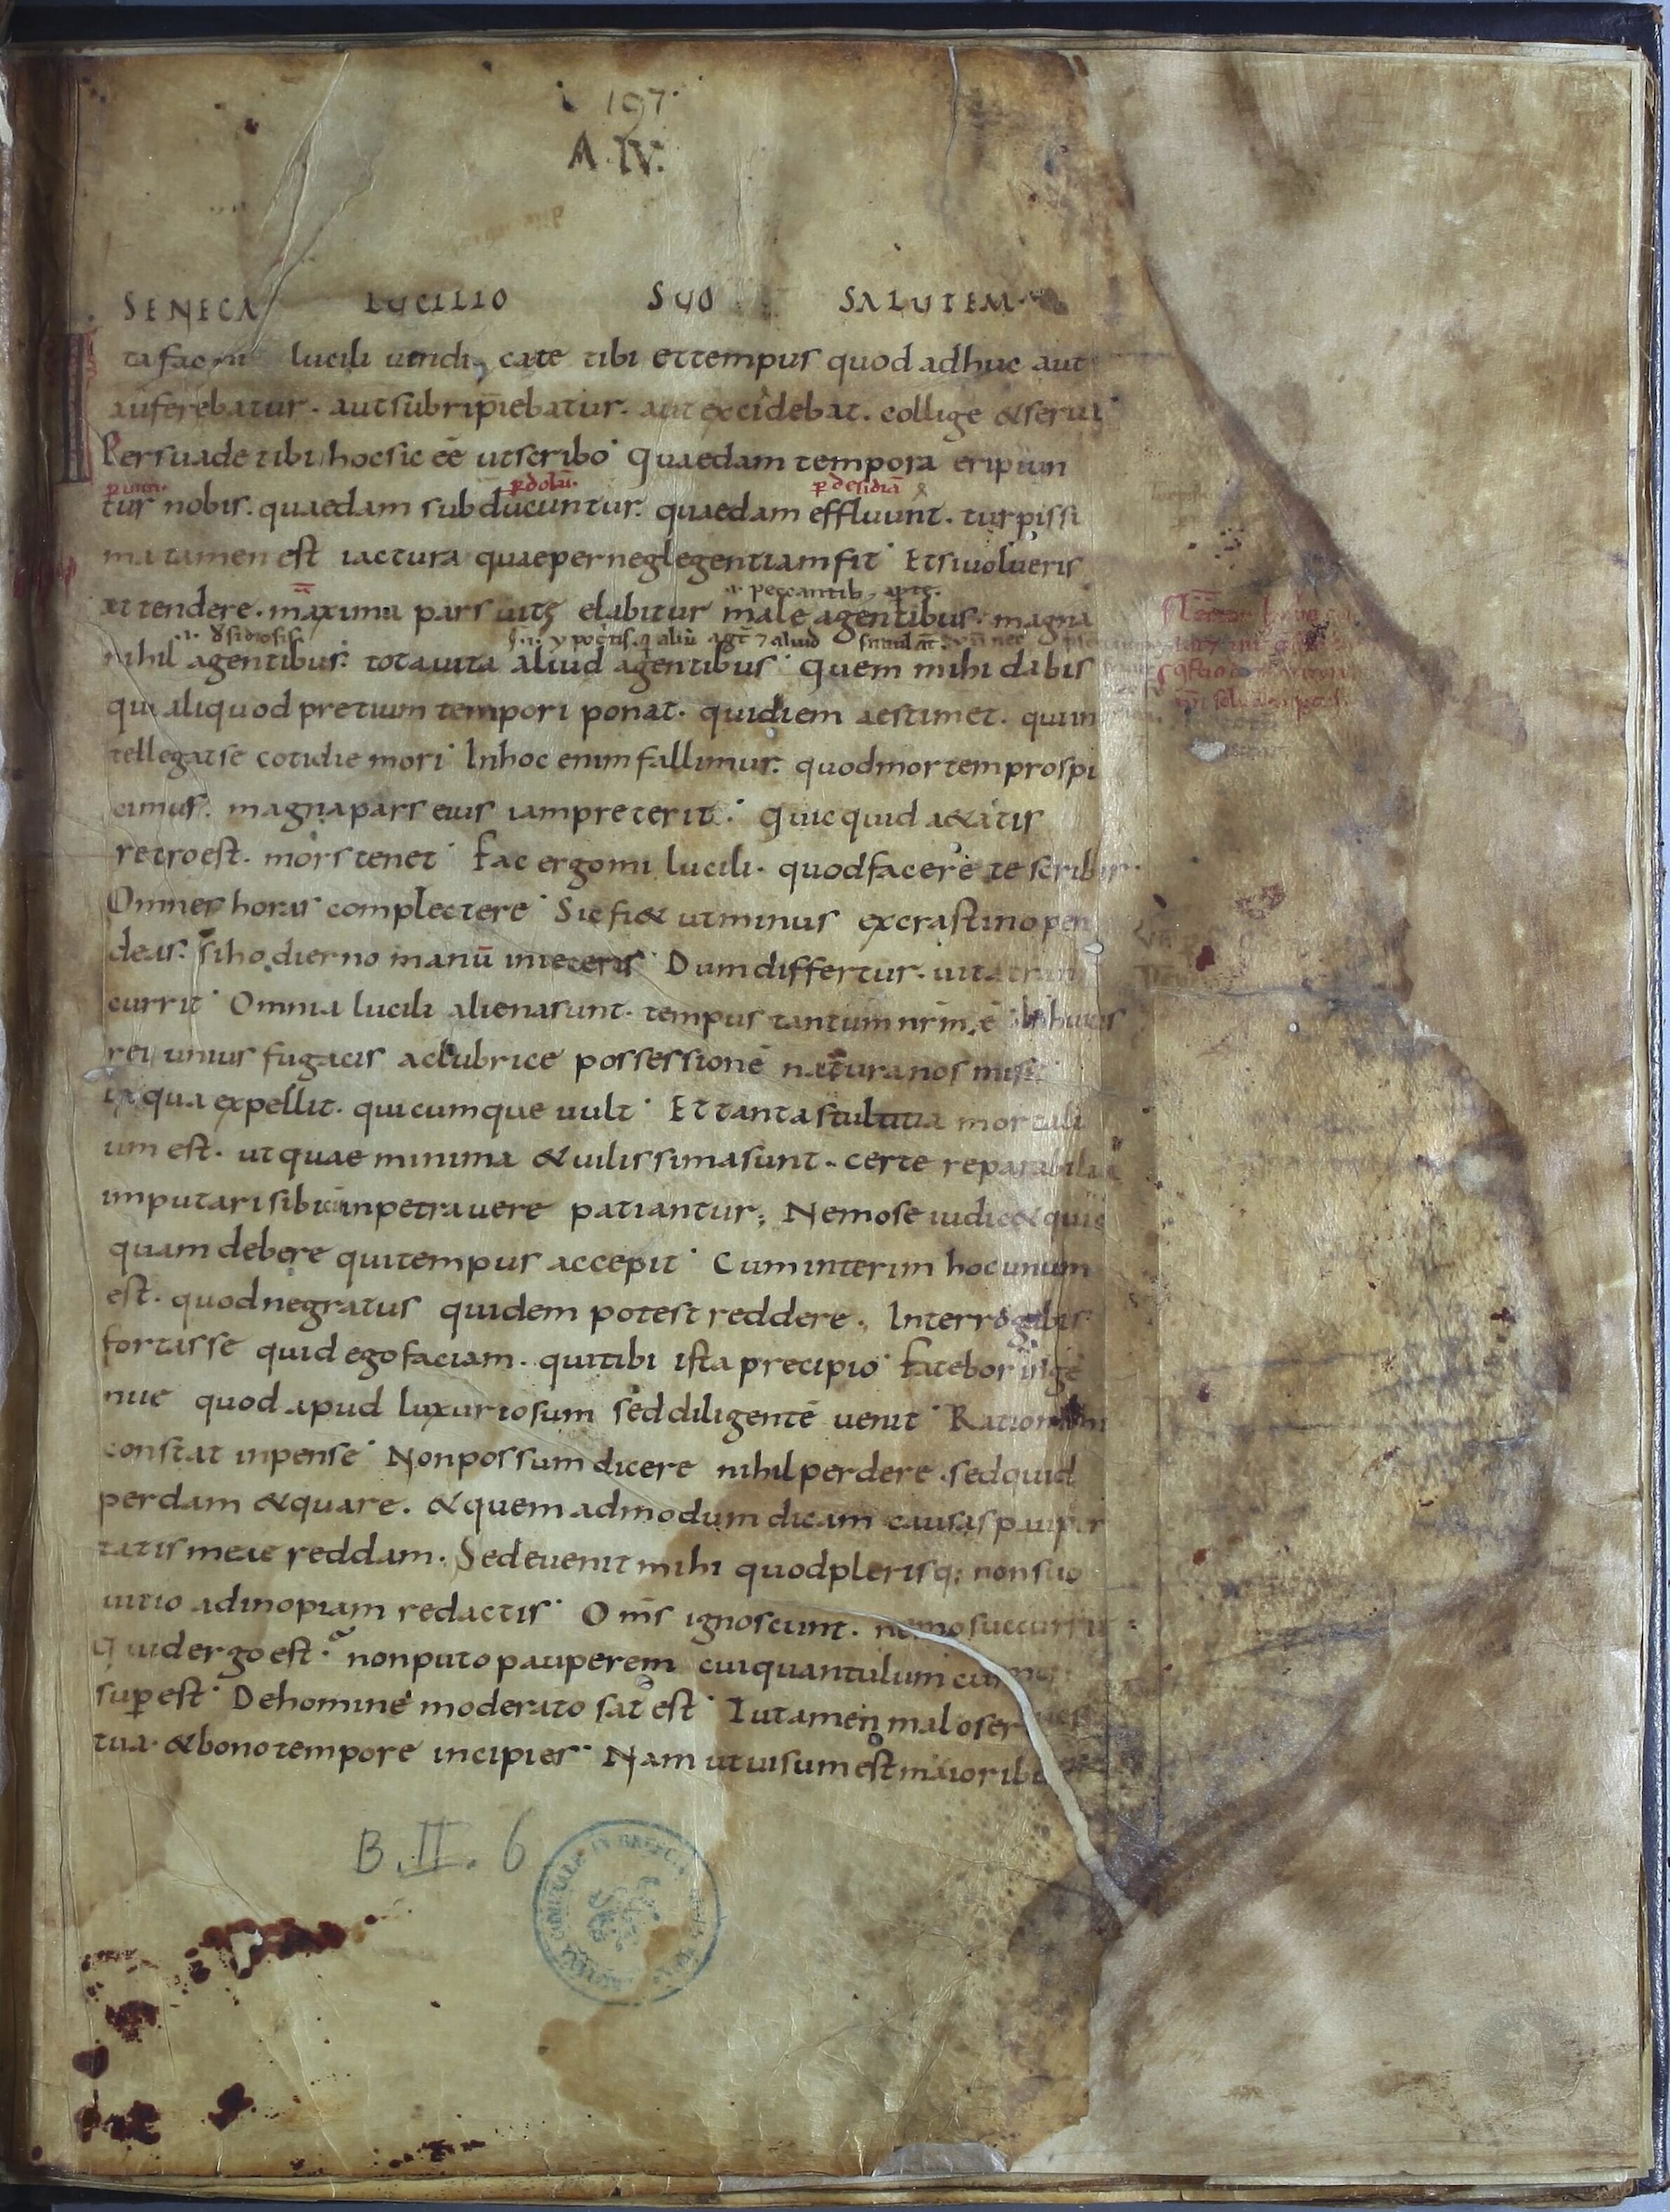 197
A. IV.
SENECA LUCILIO SUO SALUTEM
ta fac mi lucili uendi cate tibi et tempus quod adhuc aut
auferebatur. aut subripiebatur. aut excidebat. collige & serua
Persuade tibi hoc sic eē ut scribo Quaedam tempora eripiun
p̄ dolū. p̄ desidiā
tur nobis. quaedam subducuntur. quaedam effluunt. turpissi
ma tamen est iactura quae per neglegentiam fit Et si uolueris
peccantib,
attendere. maxima pars uitę elabitur male agentibus. magna
nihil agentibus. tota uita aliud agentibus Quem mihi dabis
qui aliquod pretium tempori ponat. qui diem aestimet. qui in
tellegat se cotidie mori In hoc enim fallimur. quod mortem prospi
cimus. magna pars eius iam preterit. Quicquid a&atis
retro est. mors tenet fac ergo mi lucili. quod facere te scribis.
Omnes horas complectere Sic fi& ut minus ex crastino pen
deas. si hodierno manū inieceris Dum differtur. uita
currit Omnia lucili aliena sunt. tempus tantum nr̄m ē In huius
rei unius fugacis ac lubrice possessionē natura nos misit
ex qua expellit. quicumque uult Et tanta stultitia mortali
um est. ut quae minima & uilissima sunt. certe reparabilia
imputari sibi inpetrauere patiantur; Nemo se iudic& quic
quam debere qui tempus accepit Cum interim hoc unum
est. quod ne gratus quidem potest reddere. Interrogabis
fortasse quid ego faciam. qui tibi ista precipio fatebor inge
nue quod apud luxuriosum sed diligentē uenit Ratio
constat inpense Non possum dicere nihil perdere. sed quid
perdam & quare. & quem admodum dicam causas pauper
tatis meae reddam. Sed euenit mihi quod plerisq; non suo
uitio ad inopiam redactis Om̄s ignoscunt. nemo succurrit
Quid ergo est. non puto pauperem cui quantulum cum
sup̄est De homine moderato sat est Tu tamen malo serues
tua. & bono tempore incipies Nam ut uisum est maiorib
B. II. 6